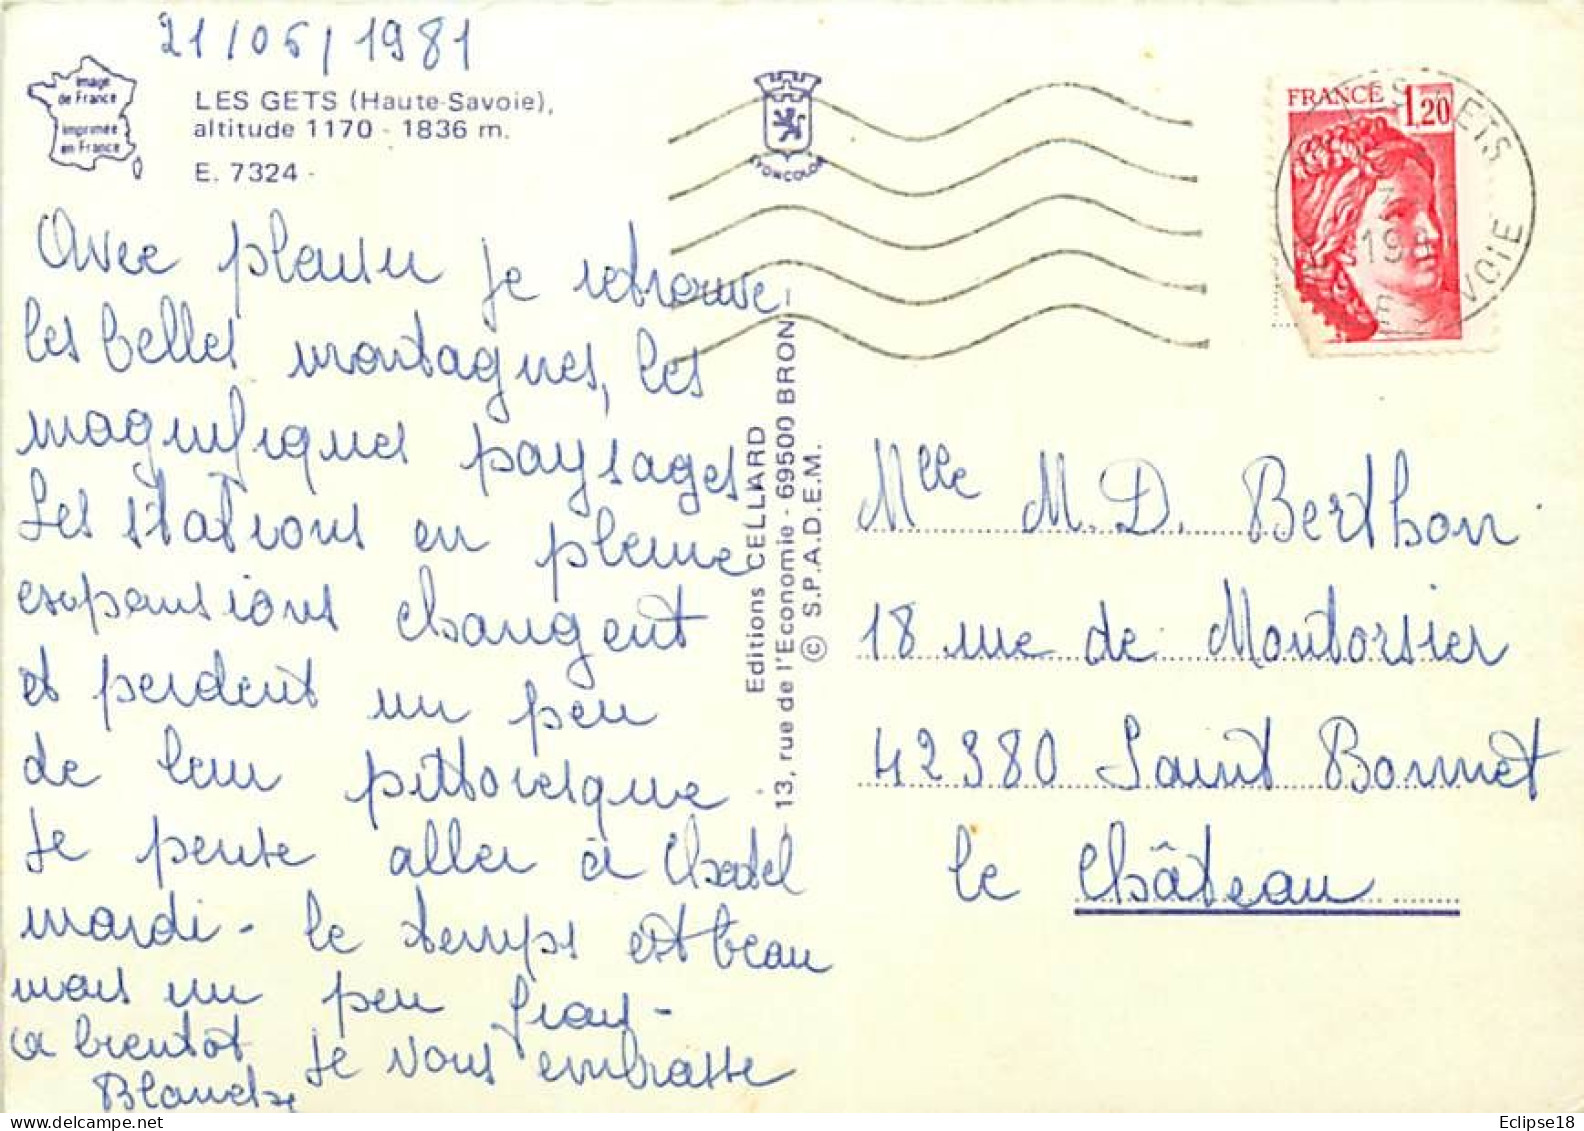 21/06/1981
Image
de France
imprimée
en France
LES GETS (Haute-Savoie),
altitude 1170 - 1836 m.
E. 7324 -
Avec plaisir je retrouve
les belles montagnes, les
magnifiques paysages
Les stations en pleine
expansions changent
et perdent un peu
de leur pittoresque
Je pense aller à Chatel
mardi - le temps est beau
mais un peu frais -
a bientôt Je vous embrasse
Blanche
LYONCOLOR
Editions CELLARD
13, rue de l'Economie - 69500 BRON
© S.P.A.D.E.M.
FRANCE 1,20
LES GETS
1981
SAVOIE
Mlle M. D. Berthon
18 rue de Montorsier
42380 Saint Bonnet
le Château
Eclipse18